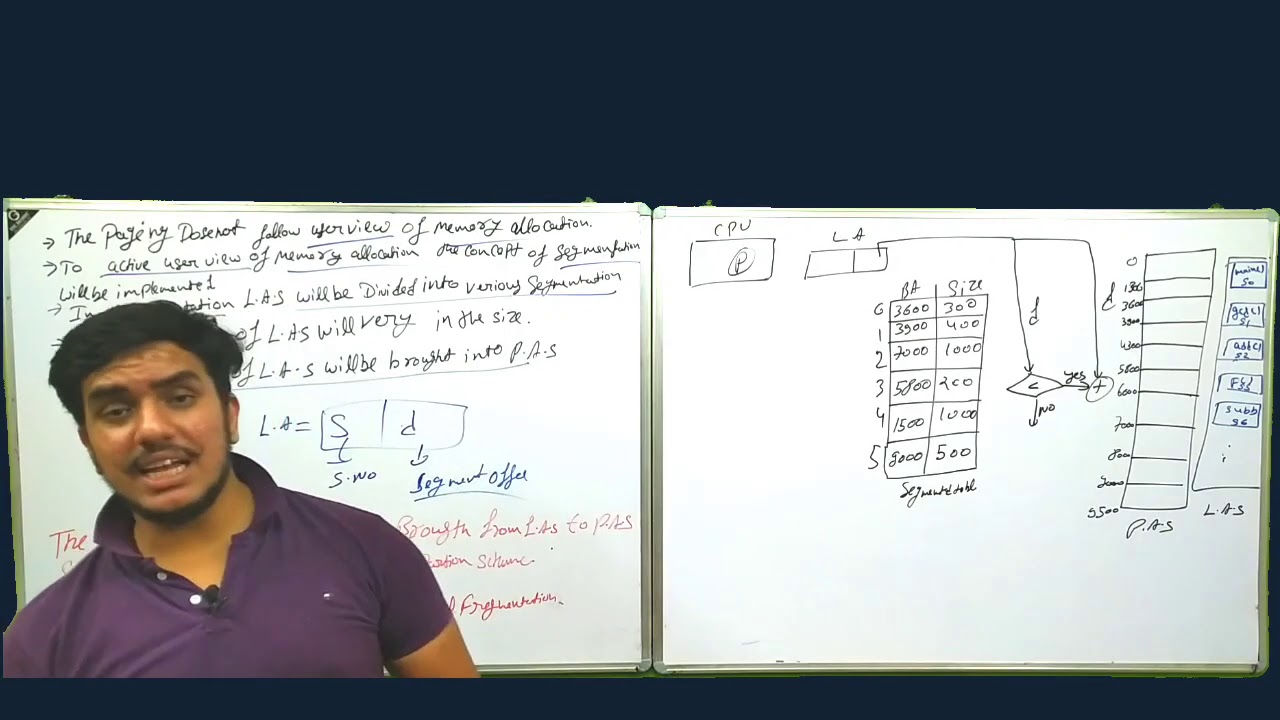 → The Paging Dosenot follow userview of memory allocation.
→ To active user view of memory allocation the concept of Segmentation
will be implemented
→ In L.A.S will be Divided into verious Segmentation
of L.A.S will very in the size.
of L.A.S will be brought into P.A.S
L.A = S d
S.NO
Segment Offe
The Brougth from L.A.S to P.A.S
Scheme.
Fregmentation.
CPU
P
L A
BA Size
0 3600 300
1 3900 400
2 7000 1000
3 5800 200
4 1500 1000
5 9000 500
Segmente table
d
<
yes
NO
+
d
0
3600
3900
4300
5800
6000
7000
8000
9000
9500
P.A.S
main()
S0
gcd()
S1
add()
S2
L.A.S